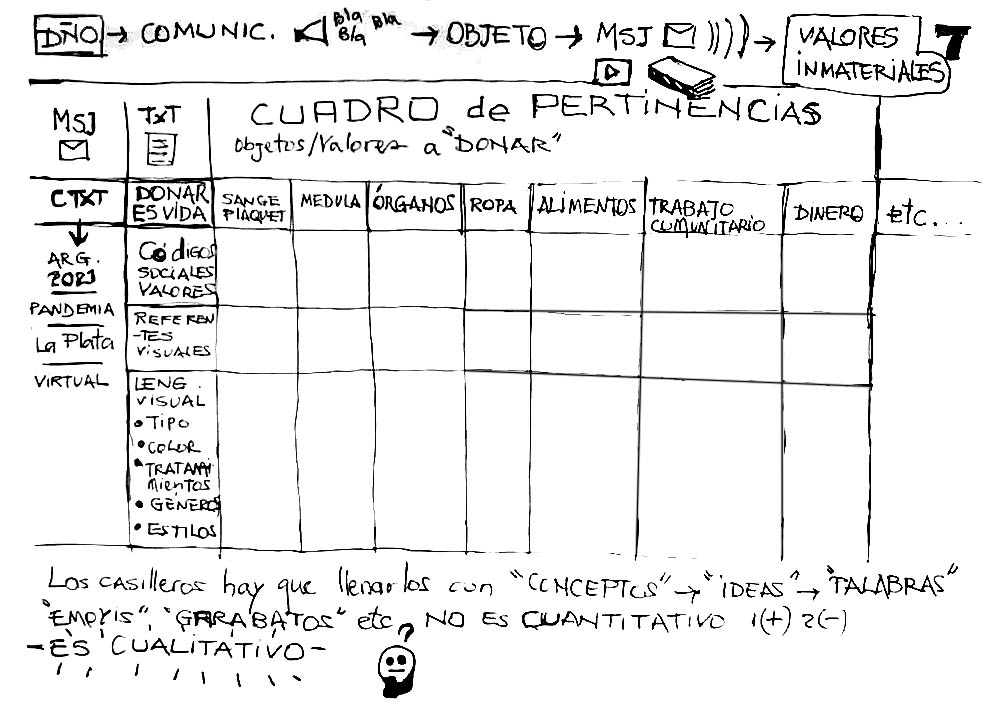 DÑO. → COMUNIC. Bla Bla Bla → OBJETO → MSJ → VALORES INMATERIALES 7
MSJ
TXT
CUADRO de PERTINENCIAS
Objetos/Valores a "DONAR"
CTXT
DONAR ES VIDA
SANGE PLAQUET
MEDULA
ÓRGANOS
ROPA
ALIMENTOS
TRABAJO COMUNITARIO
DINERO
etc...
ARG.
2021
PANDEMIA
La Plata
VIRTUAL
Códigos
SOCIALES
VALORES
REFEREN
-TES
VISUALES
LENG.
VISUAL
• TIPO
• COLOR
• TRATAMI
mientos
• GÉNEROS
• ESTILOS
Los casilleros hay que llenarlos con "CONCEPTOS" → "IDEAS" → "PALABRAS"
"EMOJIS", "GARABATOS" etc, NO ES CUANTITATIVO 1(+) 2(-)
- ES CUALITATIVO -